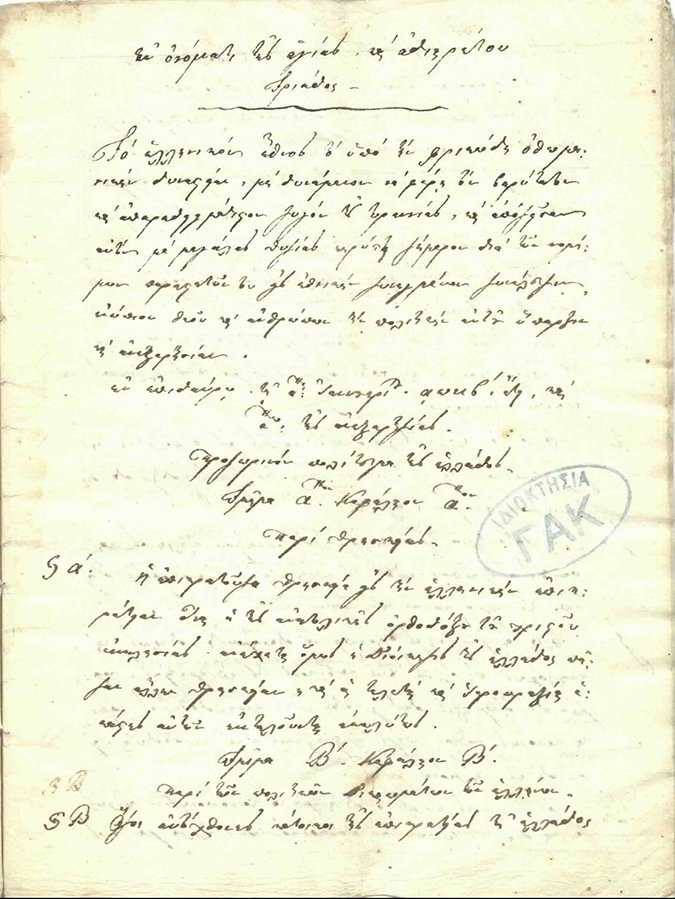 ἐν ὀνόματι τῆς ἁγίας, καὶ ἀδιαιρέτου
Τριάδος
Τὸ ἑλληνικὸν ἔθνος τὸ ὑπὸ τὴν φρικώδη ὀθωμα-
νικὴν δυναστείαν, μὴ δυνάμενον νὰ φέρῃ τὸν βαρύτατον
καὶ ἀπαραδειγμάτιστον ζυγὸν τῆς τυραννίας, καὶ ἀποσεῖσαν
αὐτὸν μὲ μεγάλας θυσίας κηρύττει σήμερον διὰ τῶν νομί-
μων παραστατῶν του εἰς ἐθνικὴν συνηγμένων συνέλευσιν,
ἐνώπιον θεοῦ καὶ ἀνθρώπων τὴν πολιτικὴν αὐτοῦ ὕπαρξιν
καὶ ἀνεξαρτησίαν.
ἐν ἐπιδαύρῳ τὴν α: Ἰαννουαρίου αωκβ´ ἔτει, καὶ
αον τῆς ἀνεξαρτησίας.
Προσωρινὸν πολίτευμα τῆς ἑλλάδος.
Τμῆμα Α´. Κεφάλαιον Α´.
Περὶ θρησκείας.
§ α´. Ἡ ἐπικρατοῦσα θρησκεία εἰς τὴν ἑλληνικὴν ἐπικ-
ράτειαν εἶναι ἡ τῆς ἀνατολικῆς ὀρθοδόξου τοῦ χριστοῦ
ἐκκλησίας· ἀνέχεται ὅμως ἡ διοίκησις τῆς ἑλλάδος πᾶ-
σαν ἄλλην θρησκείαν, καὶ αἱ τελεταὶ καὶ ἱεροπραξίαι ἑ-
κάστης αὐτῶν ἐκτελοῦνται ἀκωλύτως.
Τμῆμα Β´. Κεφάλαιον Β´.
§ Β Περὶ τῶν πολιτικῶν δικαιωμάτων τῶν ἑλλήνων.
§ Β Ὅσοι αὐτόχθονες κάτοικοι τῆς ἐπικρατείας τῆς ἑλλάδος
ΙΔΙΟΚΤΗΣΙΑ
ΓΑΚ